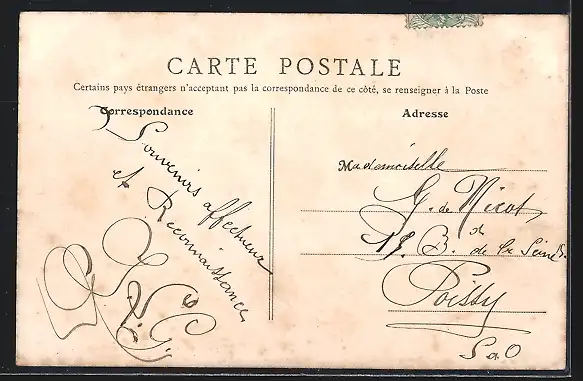 CARTE POSTALE
Certains pays étrangers n'acceptant pas la correspondance de ce côté, se renseigner à la Poste
Correspondance
Souvenirs affectueux
et Reconnaissance
Adresse
Mademoiselle
G. de Nicot
B. de la Seine
Poissy
S a O